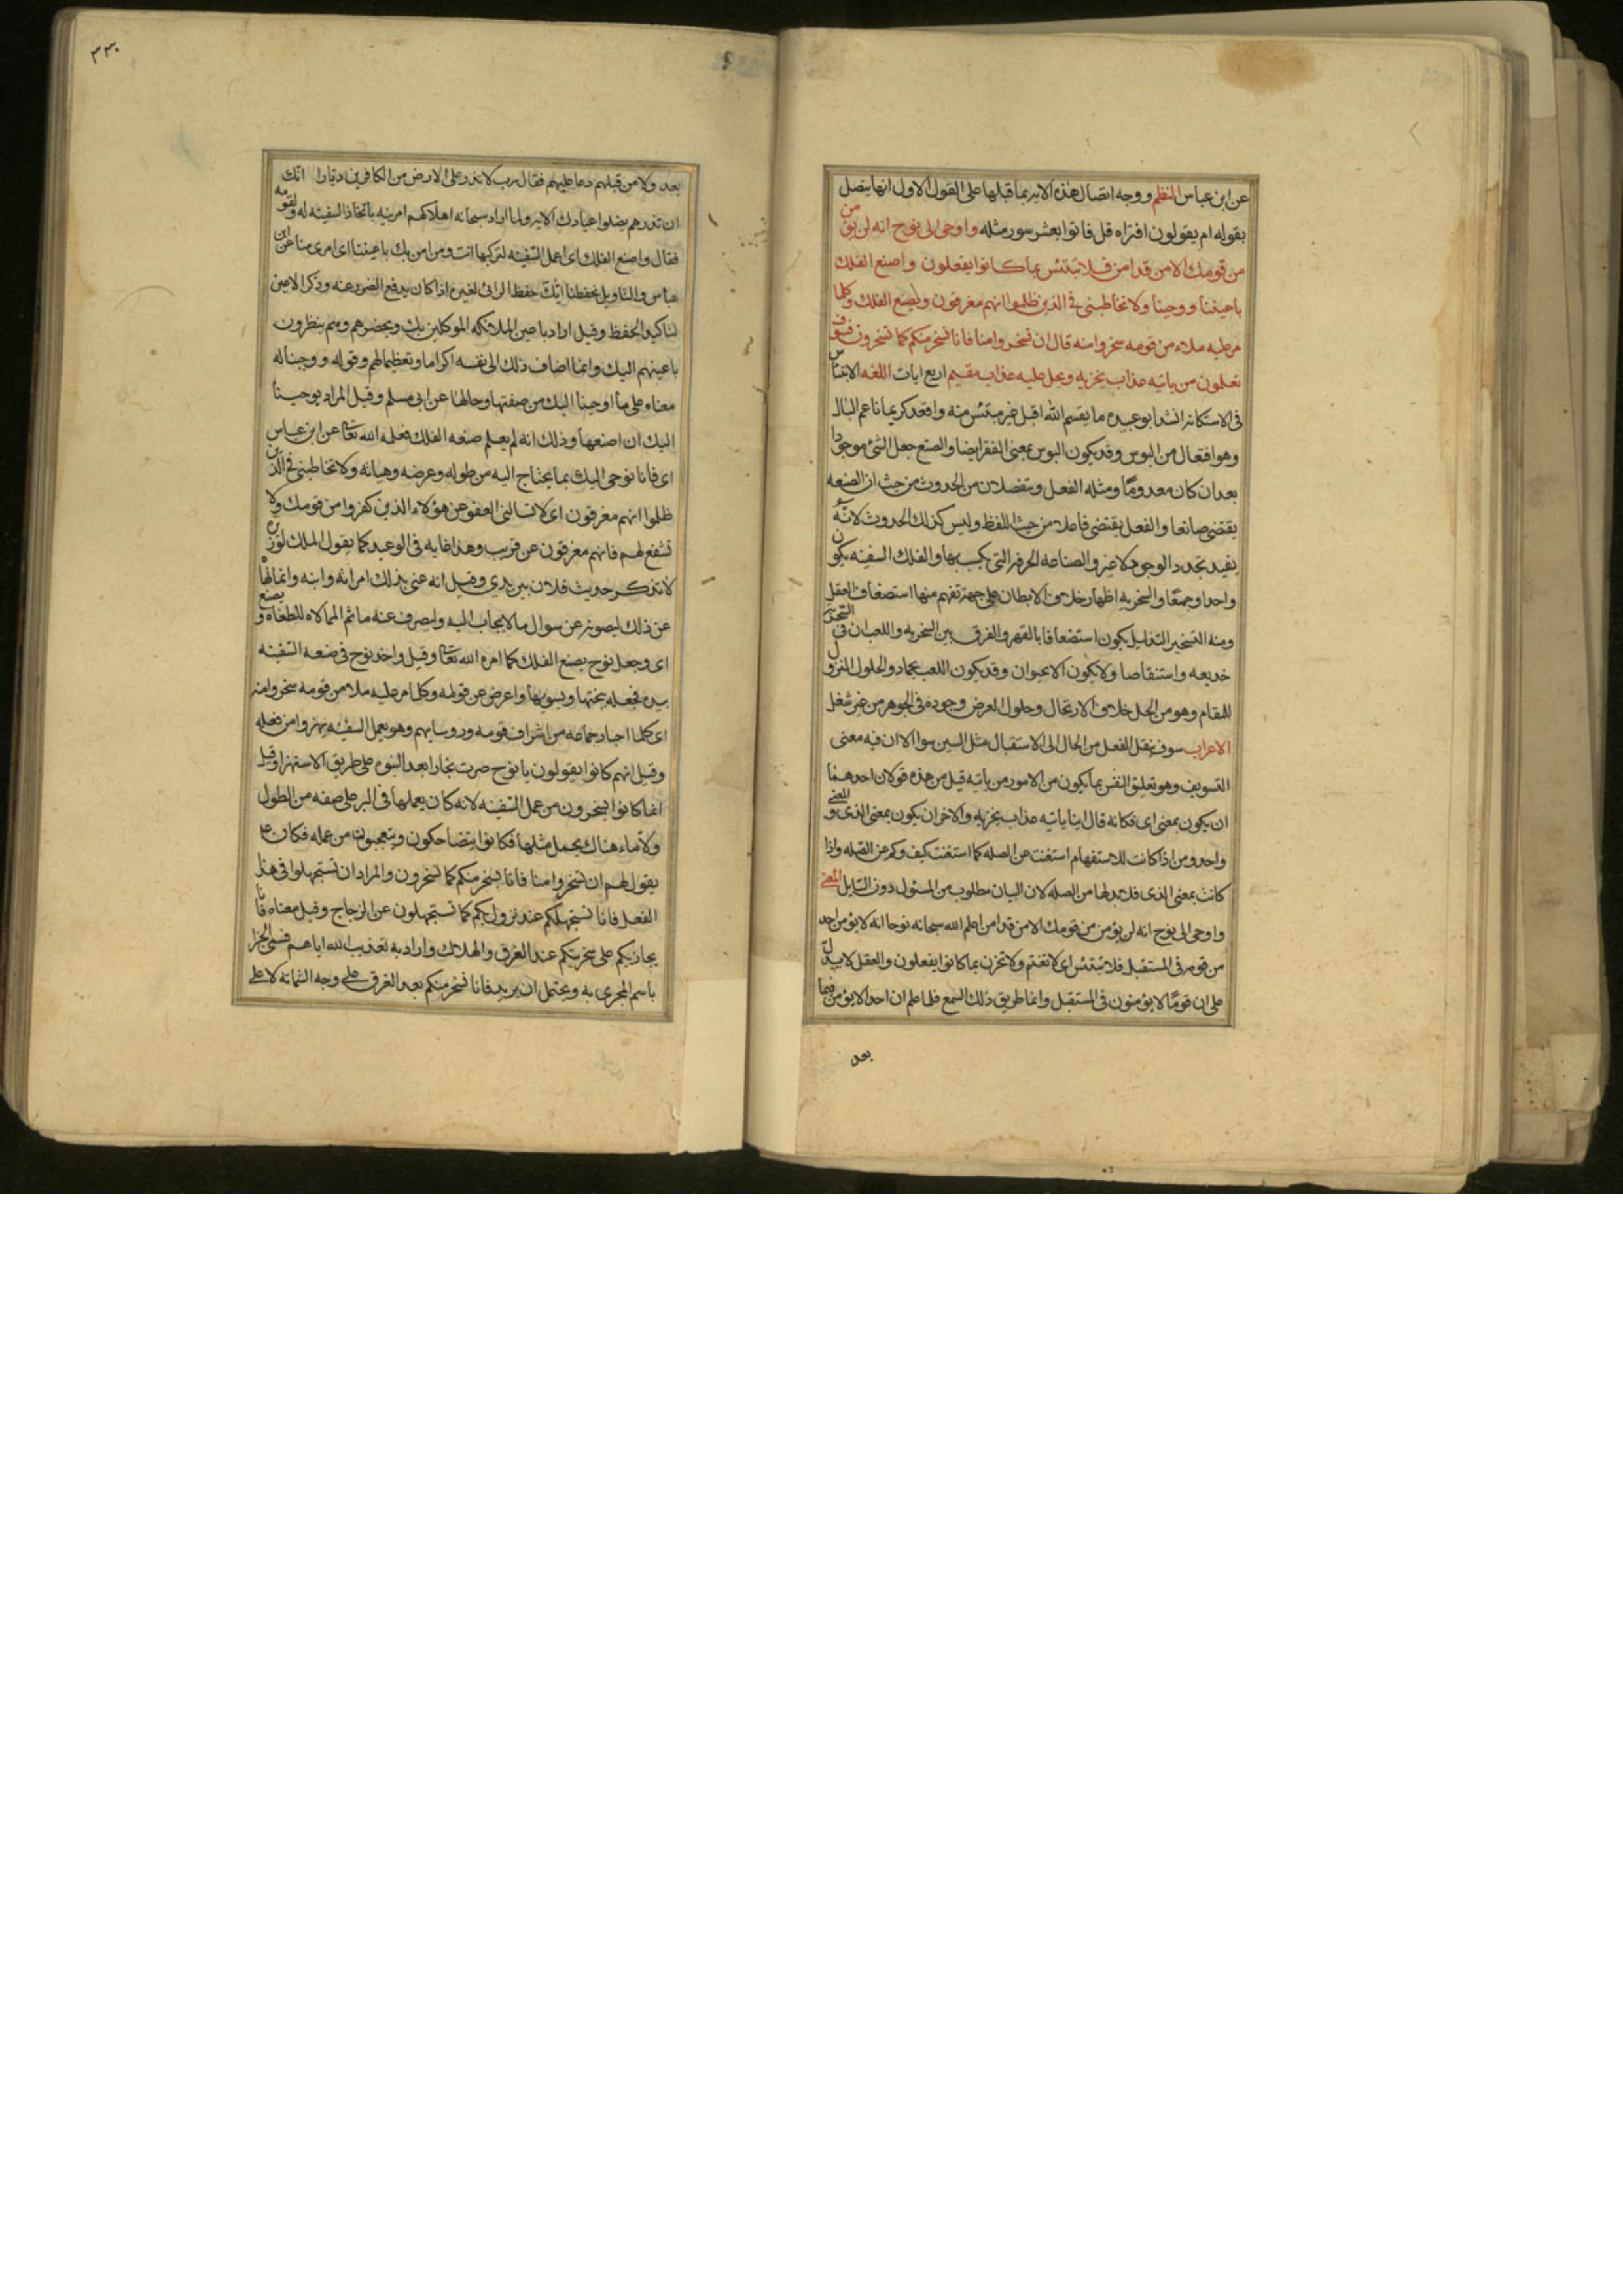 عن ابن عباس النظم ووجه اتصال هذه الايه بما قبلها على القول الاول انها يتصل
بقوله ام يقولون افتراه قل فاتوا بعشر سور مثله واوحى الى نوح انه لن يؤمن
من قومك الا من قد امن فلا تبتئس بما كانوا يفعلون واصنع الفلك
باعيننا ووحينا ولا تخاطبنى فى الذين ظلموا انهم مغرقون ويصنع الفلك وكلما
مر عليه ملاء من قومه سخروا منه قال ان تسخروا منا فانا نسخر منكم كما تسخرون فسوف
تعلمون من ياتيه عذاب يخزيه ويحل عليه عذاب مقيم اربع ايات اللغه الابتئاس
فى الاستكانه انشد ابو عبيده ما يقسم الله اقبل غير مبتئس منه واقعد كريما ناعم البال
وهو افتعال من البوس وقد يكون البوس بمعنى الفقر ايضا والصنع جعل الشئ موجودا
بعد ان كان معدومًا ومثله الفعل وينفصلان من الحدوث من حيث ان الصنعه
يقتضى صانعا والفعل يقتضى فاعلا من حيث اللفظ وليس كذلك الحدوث لانه
يفيد تجدد الوجود لا غير والصناعه الحرفه التى يكسب بها والفلك السفينه يكون
واحدا وجمعًا والسخريه اظهار خلاف الابطان على جهة تفهم منها استضعاف العقل
ومنه التسخير التذليل يكون استضعافا بالقهر والفرق بين السخريه واللعب ان فى السخريه
خديعه واستنقاصا ولا يكون الا بحيوان وقد يكون اللعب بجماد والحلول النزول
للمقام وهو من الحل خلاف الارتحال وحلول العرض وجوده فى الجوهر من غير شغل
الاعراب سوف ينقل الفعل من الحال الى الاستقبال مثل السين سوا الا ان فيه معنى
التسويف وهو تعليق النفس بما يكون من الامور من ياتيه قيل من هذه قولان احدهما
ان يكون بمعنى اى فكانه قال اينا ياتيه عذاب يخزيه والاخر ان يكون بمعنى الذى والمعنى
واحد ومن اذا كانت للاستفهام استغنت عن الصله كما استغنت كيف وكم عن الصله واذا
كانت بمعنى الذى فلا بد لها من الصله لان البيان مطلوب من المسئول دون السايل المعنى
واوحى الى نوح انه لن يؤمن من قومك الا من قد امن اعلم الله سبحانه نوحا انه لا يؤمن احد
من قومه فى المستقبل فلا تبتئس اى لا تغتم ولا تحزن بما كانوا يفعلون والعقل لا يدل
على ان قومًا لا يؤمنون فى المستقبل وانما طريق ذلك السمع فلما علم ان احدا لا يؤمن فيما
بعد
٣٣٠
بعد ولا من قبلهم دعا عليهم فقال رب لا تذر على الارض من الكافرين ديارا انك
ان تذرهم يضلوا عبادك الايه ولما اراد سبحانه اهلاكهم امر نبيه باتخاذ السفينه له ولقومه
فقال واصنع الفلك اى اعمل السفينه لتركبها انت ومن امن بك باعيننا اى بمرى منا عن ابن
عباس والتاويل بحفظنا اياك حفظ الرائى لغيره اذا كان يدفع الضرر عنه وذكر الاعين
لتاكيد الحفظ وقيل اراد باعين الملائكه الموكلين بك وبحضرهم وهم ينظرون
باعينهم اليك وانما اضاف ذلك الى نفسه اكراما وتعظيما لهم وقوله ووحينا له
معناه على ما اوحينا اليك من صفتها وحالها عن ابى مسلم وقيل المراد بوحينا
اليك ان اصنعها وذلك انه لم يعلم صنعه الفلك فعلمه الله تعالى عن ابن عباس
اى فانا نوحى اليك بما يحتاج اليه من طوله وعرضه وهيأته ولا تخاطبنى فى الذين
ظلموا انهم مغرقون اى لا تسالنى العفو عن هؤلاء الذين كفروا من قومك ولا
تشفع لهم فانهم مغرقون عن قريب وهذا غايه فى الوعيد كما يقول الملك لوزيره
لا تذكر حديث فلان بين يدى وقيل انه عنى بذلك امراته وابنه وانما نهاه
عن ذلك ليصونه عن سوال ما لا يجاب اليه وليصرف عنه ماثم الممالاه للطغاه ويصنع
اى وجعل نوح يصنع الفلك كما امره الله تعالى وقيل واخذ نوح فى صنعه السفينه
بيده فجعل ينحتها ويسويها واعرض عن قومه وكلما مر عليه ملا من قومه سخروا منه
اى كلما اجتاز جماعه من اشراف قومه وروسايهم وهو يعمل السفينه يهزوا من فعله
وقيل انهم كانوا يقولون يا نوح صرت نجارا بعد النبوه على طريق الاستهزا وقيل
انما كانوا يسخرون من عمل السفينه لانه كان يعملها فى البر على صفه من الطول
ولا ماء هناك يحمل مثلها فكانوا يتضاحكون ويتعجبون من عمله فكان ع
يقول لهم ان تسخروا منا فانا نسخر منكم كما تسخرون والمراد ان تستجهلوا فى هذا
الفعل فانا نستجهلكم عند نزول بكم كما تستجهلون عن الزجاج وقيل معناه فانا
يجازيكم على سخريتكم عند الغرق والهلاك واراد به تعذيب الله اياهم فسمى الجزا
باسم المجزى به ويحتمل ان يريد فانا نسخر منكم بعد الغرق على وجه الشماته لا على